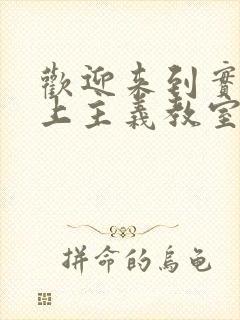 歡迎來到實
上主義教室
拼命的烏龜